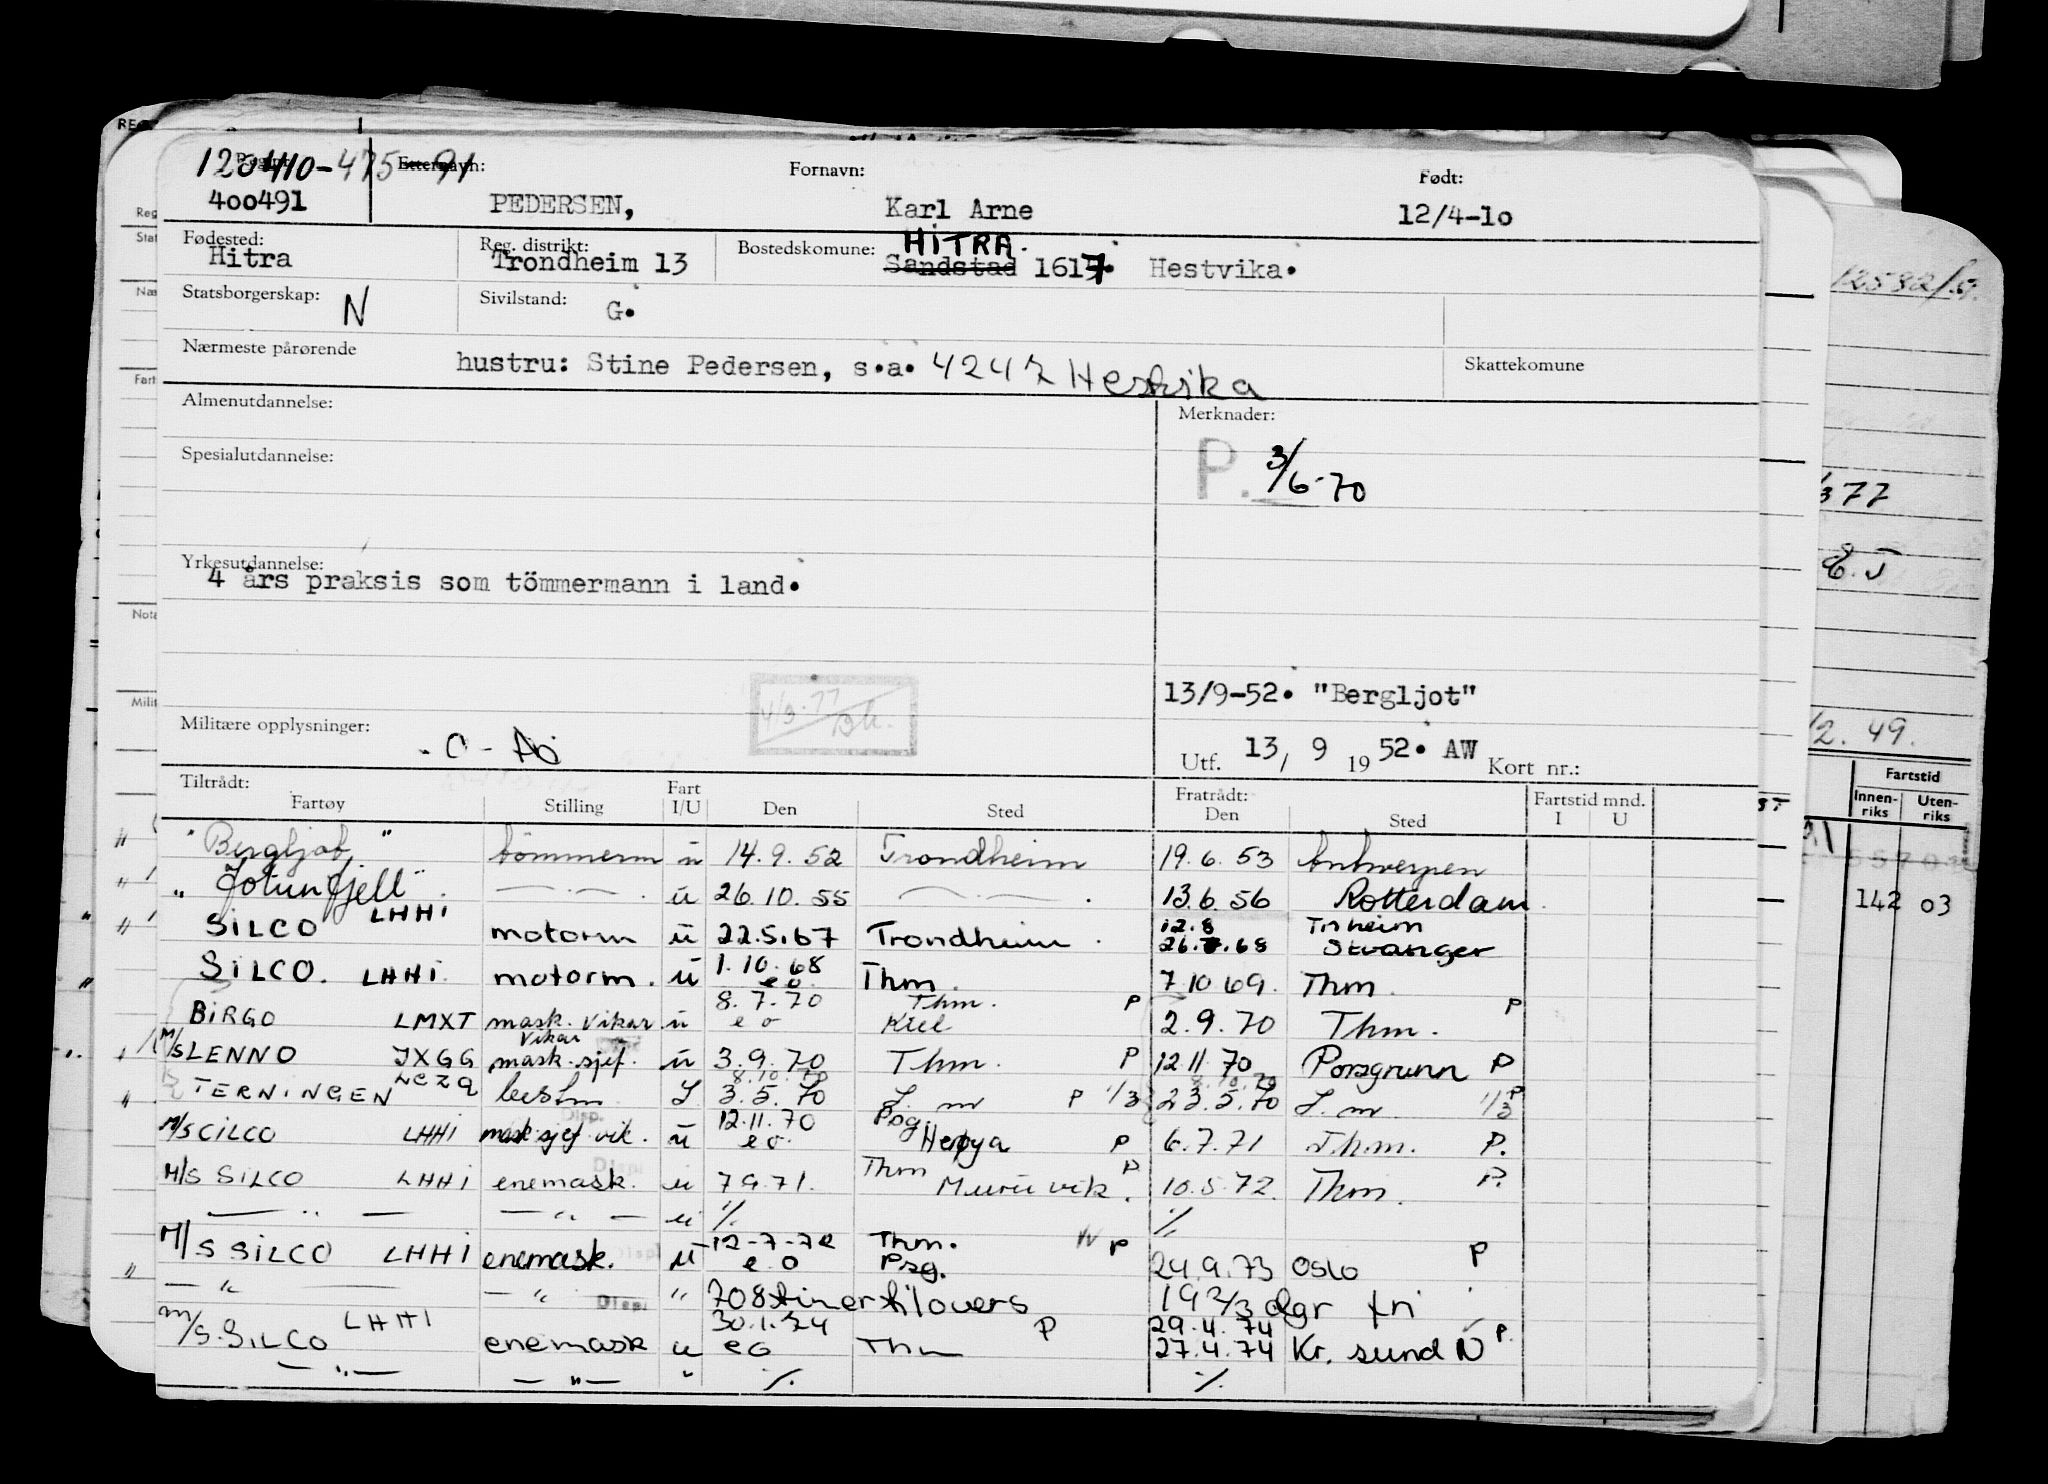 Etternavn: Fornavn: Født:
120410-475-91
400491 PEDERSEN, Karl Arne 12/4-1o
Fødested: Reg. distrikt: Bostedskomune: HITRA.
Hitra Trondheim 13 Sandstad 1617. Hestvika.
Statsborgerskap: N Sivilstand: G.
Nærmeste pårørende hustru: Stine Pedersen, s.a. 4247 Hestvika Skattekomune
Almenutdannelse: Merknader:
P. 3/6-70
Spesialutdannelse:
Yrkesutdannelse:
4 års praksis som tömmermann i land.
13/9-52. "Bergljot"
Militære opplysninger:
Utf. 13/ 9 1952. AW Kort nr.:
Tiltrådt: Fart Fratrådt: Fartstid mnd.
Fartøy Stilling I/U Den Sted Den Sted I U
"Bergljot" tömmerm u 14.9.52 Trondheim 19.6.53 Antwerpen
"Jotunfjell" u 26.10.55 13.6.56 Rotterdam
SILCO LHHI motorm u 22.5.67 Trondheim 12.8 Trheim
26.7.68 Stvanger
SILCO. LHHI motorm. u 1.10.68 Thm. 7 10 69. Thm
eo.
BIRGO LMXT mask. vikar u 8.7.70 Thm. P 2.9.70 Thm. P
eo Kiel
M/S LENNO JXGG vikar mask.sjef. u 3.9.70 Thm. P 12.11.70 Porsgrunn P
8.10.70 8.10.70
TERNINGEN LCZQ bestm J 3.5.70 J. m P 1/3 23.5.70 J. m 1/3 P
M/S CILCO LHHI mask sjef vik. u 12.11.70 Psg. 6.7.71 Thm. P.
eo. Herøya P
M/S SILCO LHHI enemask. u 7 9.71. Thm P 10.5.72. Thm. P.
— " — — " — u % %
M/S SILCO LHHI enemask. u 12-7-72 Thm. P 24.9.73 Oslo P
eo Psg.
— " — — " — " 708 timer tilovers 19 2/3 dgr fri
M/S. SILCO LHHI enemask u 30.1.74 P 29.4.74 P.
eo Thm 27.4.74 Kr. sund N
— " — — " — " % %
377
12.49.
Fartstid
Innen-
riks Uten-
riks
142 03